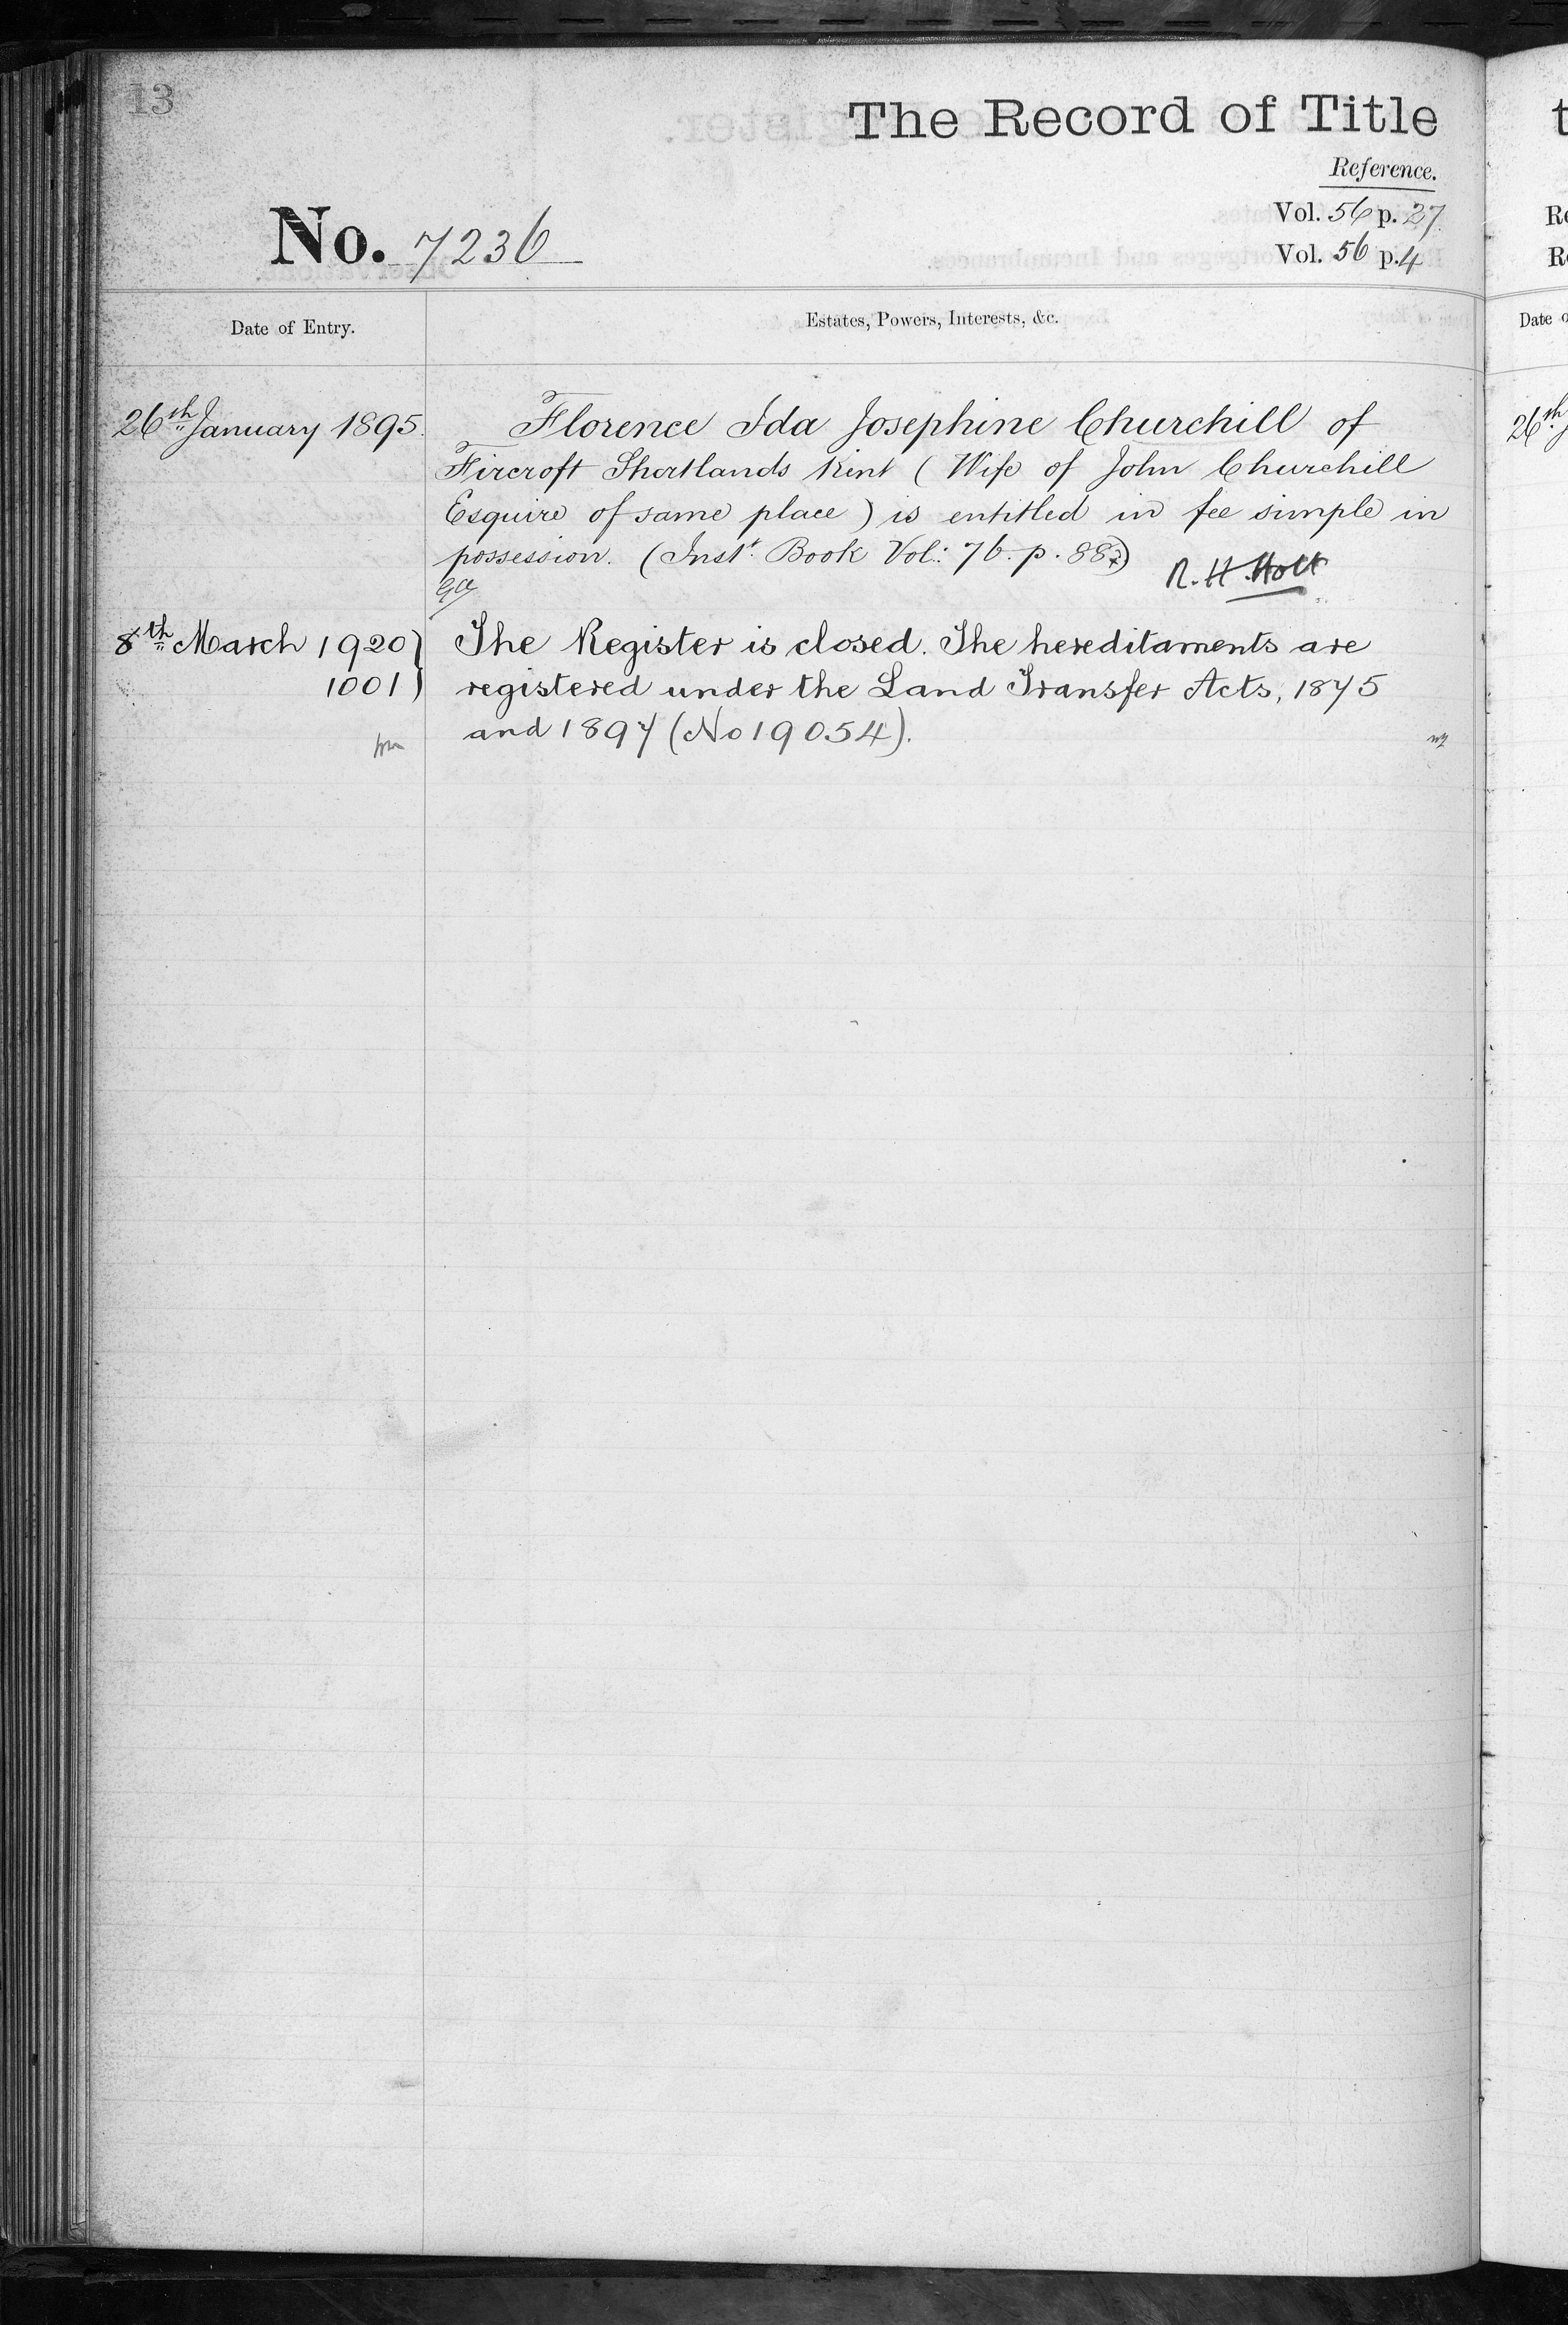 13
The Record of Title
Reference.
Vol. 56 p. 27
No. 7236
Vol. 56 p. 4
Date of Entry.
Estates, Powers, Interests, &c.
26th January 1895.
Florence Ida Josephine Churchill of
Fircroft Shortlands Kent (Wife of John Churchill
Esquire of same place) is entitled in fee simple in
possession. (Inst. Book Vol: 76. p. 887)
R. H. Holt
8th March 1920}
The Register is closed. The hereditaments are
1001}
registered under the Land Transfer Acts, 1875
and 1897 (No 19054).
t
Re
R
Date o
26th J